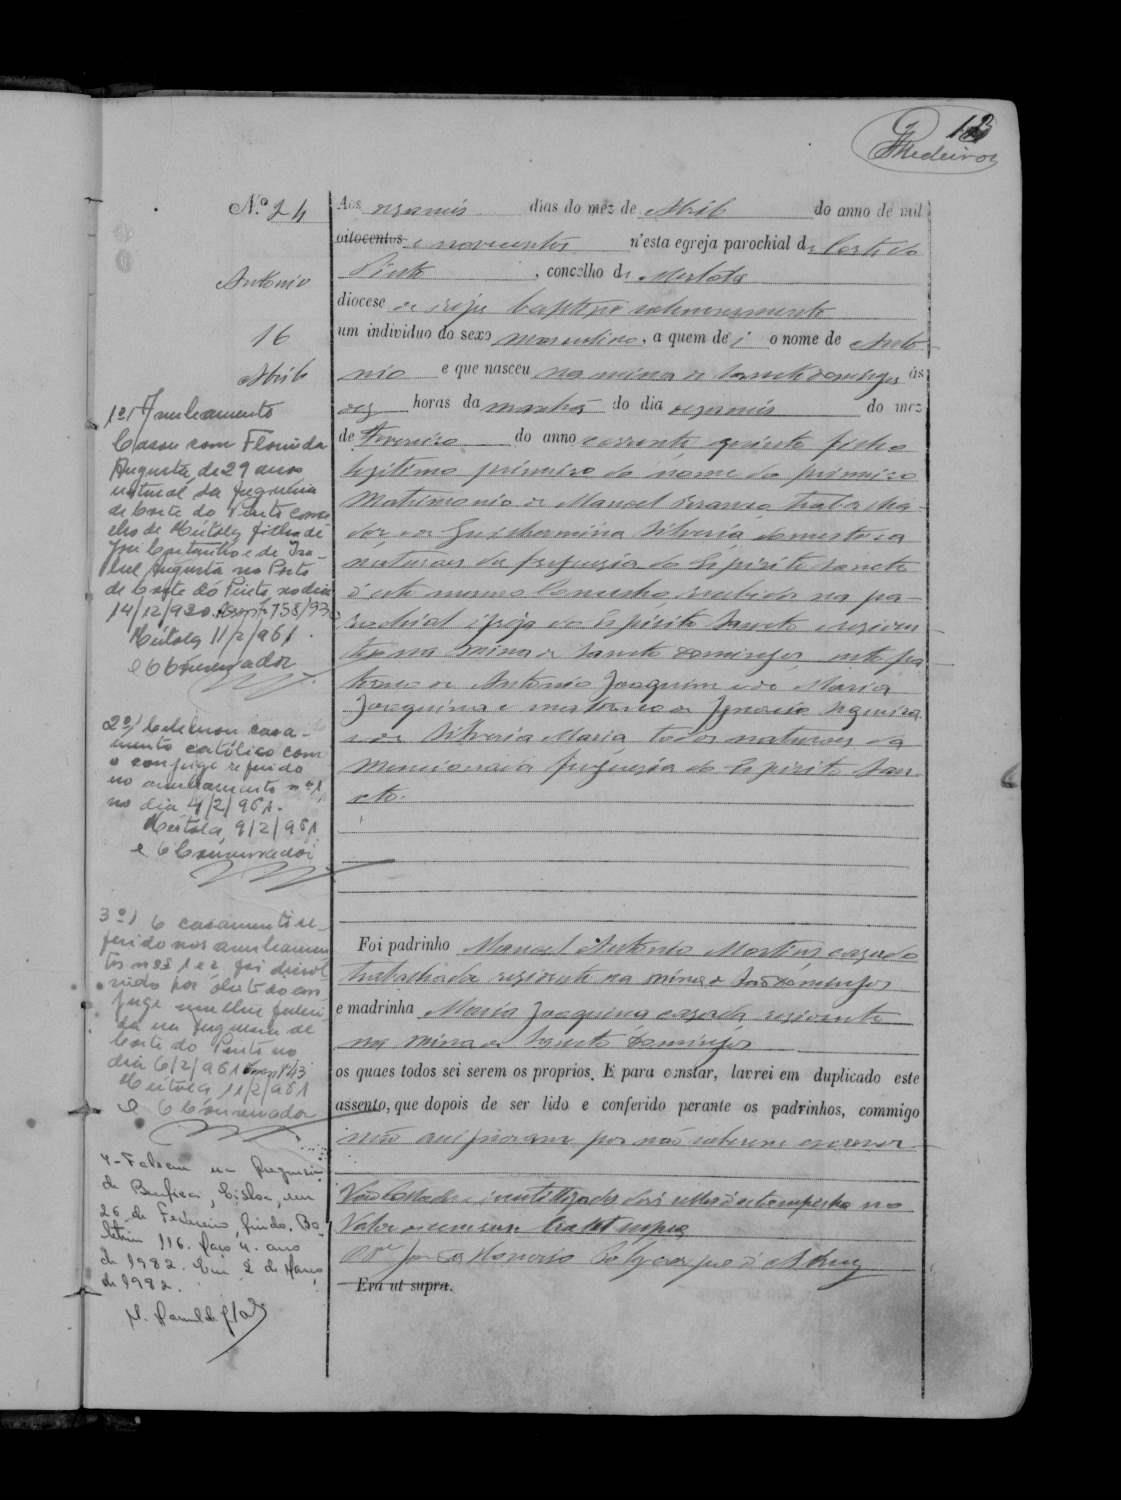 Medeiros
N.º 24
Antonio
16
Abril
Aos dezaseis dias do mêz de Abril do anno de mil
oitocentos e novecentos n'esta egreja parochial de Corte do
Pinto, concelho de Mertola
diocese de Beja baptizei solemnemente
um individuo do sexo masculino, a quem dei o nome de Anto-
nio e que nasceu na mina de Sancto Domingos ás
dez horas da manhã do dia dezaseis do mez
de Fevereiro do anno corrente, quinto filho
legitimo primeiro do nome do primeiro
matrimonio de Manoel trabalha-
dor e de Guilhermina Silveria, domestica
naturaes da freguezia do Espirito Sancto
d'este mesmo Concelho, recebidos na pa-
rochial igreja do Espirito Sancto e residen-
tes na mina de Sancto Domingos, neto pa-
terno de Antonio Joaquim e de Maria
Joaquina e materno de Ignacio
e de Silveria Maria, todos naturaes da
mencionada freguezia do Espirito San-
cto.
Foi padrinho Manoel Antonio Martins casado
trabalhador residente na mina de São Domingos
e madrinha Maria Joaquina casada residente
na mina de Sancto Domingos
os quaes todos sei serem os proprios. E para constar, lavrei em duplicado este
assento, que depois de ser lido e conferido perante os padrinhos, commigo
não assignaram por não saberem escrever
Vão collados e inutilizados dois sellos d'estampilha no
valor de
Honorio
Era ut supra.
1º) Averbamento
Casou com Florinda
Augusta, de 29 anos
natural da freguesia
de Corte do Pinto conce-
lho de Mértola, filha de
José Constantino e de Isa-
bel Augusta no Posto
de Corte do Pinto, no dia
14/12/930.
Mértola 11/2/961.
O Conservador
2º) Celebrou casa-
mento católico com
o conjuge referido
no averbamento nº 1,
no dia 4/2/961.
Mértola, 9/2/961
O Conservador
3º) O casamento re-
ferido nos averbamen-
tos nºs 1 e 2, foi dissol-
vido por óbito do con-
juge mulher faleci-
da na freguesia de
Corte do Pinto no
dia 6/2/961
Mértola 11/2/961
O Conservador
4- Faleceu na freguesia
de Benfica, Lisboa, em
26 de Fevereiro, findo. Bo-
letim 116. Maço 4. ano
de 1982. Em 2 de Março
de 1982.